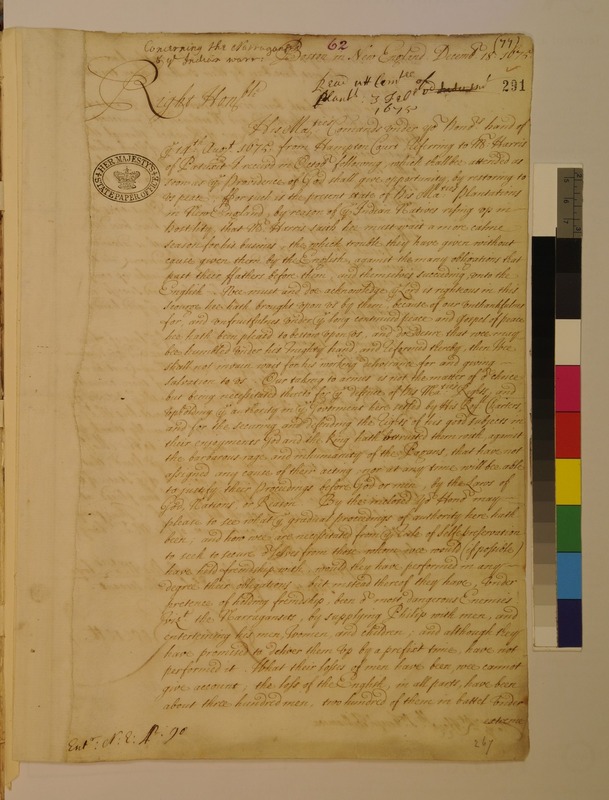 Concerning the Narragans
& ye Indian warr:
62
(77)
Boston in New England Decembr 15. 1675
Right Honble
Recd att Comtee of
plantns 3 Feb
1675
291
HER MAJESTY'S STATE PAPER OFFICE
His Maties Comands under yor Honors hand of
ye 14th Augst 1675, from Hampton Court Referring to Mr Harris
of Patuxit I received in Octobr following, which shall be attended as
soon as ye Providence of God shall give opportunity, by restoring to
us peace. For such is the present state of his Maties Plantations
in New England, by reason of ye Indian Natives rising up in
hostility, that Mr Harris saith hee must wait a more calme
season for his busines, the which trouble they have given without
cause given them by the English, against the many obligations that
past their ffathers before them, and themselves succeeding, unto the
English. Wee must and doe acknowledge ye Lord is righteous in this
scourge hee hath brought upon us by them, because of our unthankfulness
for, and unfruitfulnes under ye long continued peace and Gospel of peace
hee hath been pleased to bestow upon us, and wee desire that wee may
bee humbled under his mighty hand, and reformed thereby, then Wee
shall not in vain wait for his working deliverance for and giving
salvation to us. Our taking to armes is not the matter of or choice
but being necessitated thereto for ye defence of his Maties Rights, and
upholding ye authority in ye Goverment here setled by his Royl Charters
and for the securing and defending the Rights of his good subjects in
their engagements God and the King hath intrusted them with against
the barbarous rage and inhumanity of the Pagans, that have not
assigned any cause of their acting, nor at any time will be able
to justify their Proceedings before God or men, by the Laws of
God, Nations or Reason. By the inclosed yor Honor may
please to see what ye gradual proceedings of authority here hath
been, and how wee are necessitated from ye Rule of selfe preservation
to seek to secure orselves from those whome wee would (if possible)
have held friendship with, would they have performed in any
degree their obligations, but instead thereof they have, under
pretence of holding friendship, been or most dangerous Enemies
vizt the Narragansets, by supplying Philip with men, and
entertaining his men, women, and children; and although they
have promised to deliver them up by a prefixt time, have not
performed it. What their losses of men have been wee cannot
give account; the loss of the English, in all parts, have been
about three hundred men, two hundred of them in battel under
extreme
Entd. N: E: 90
267